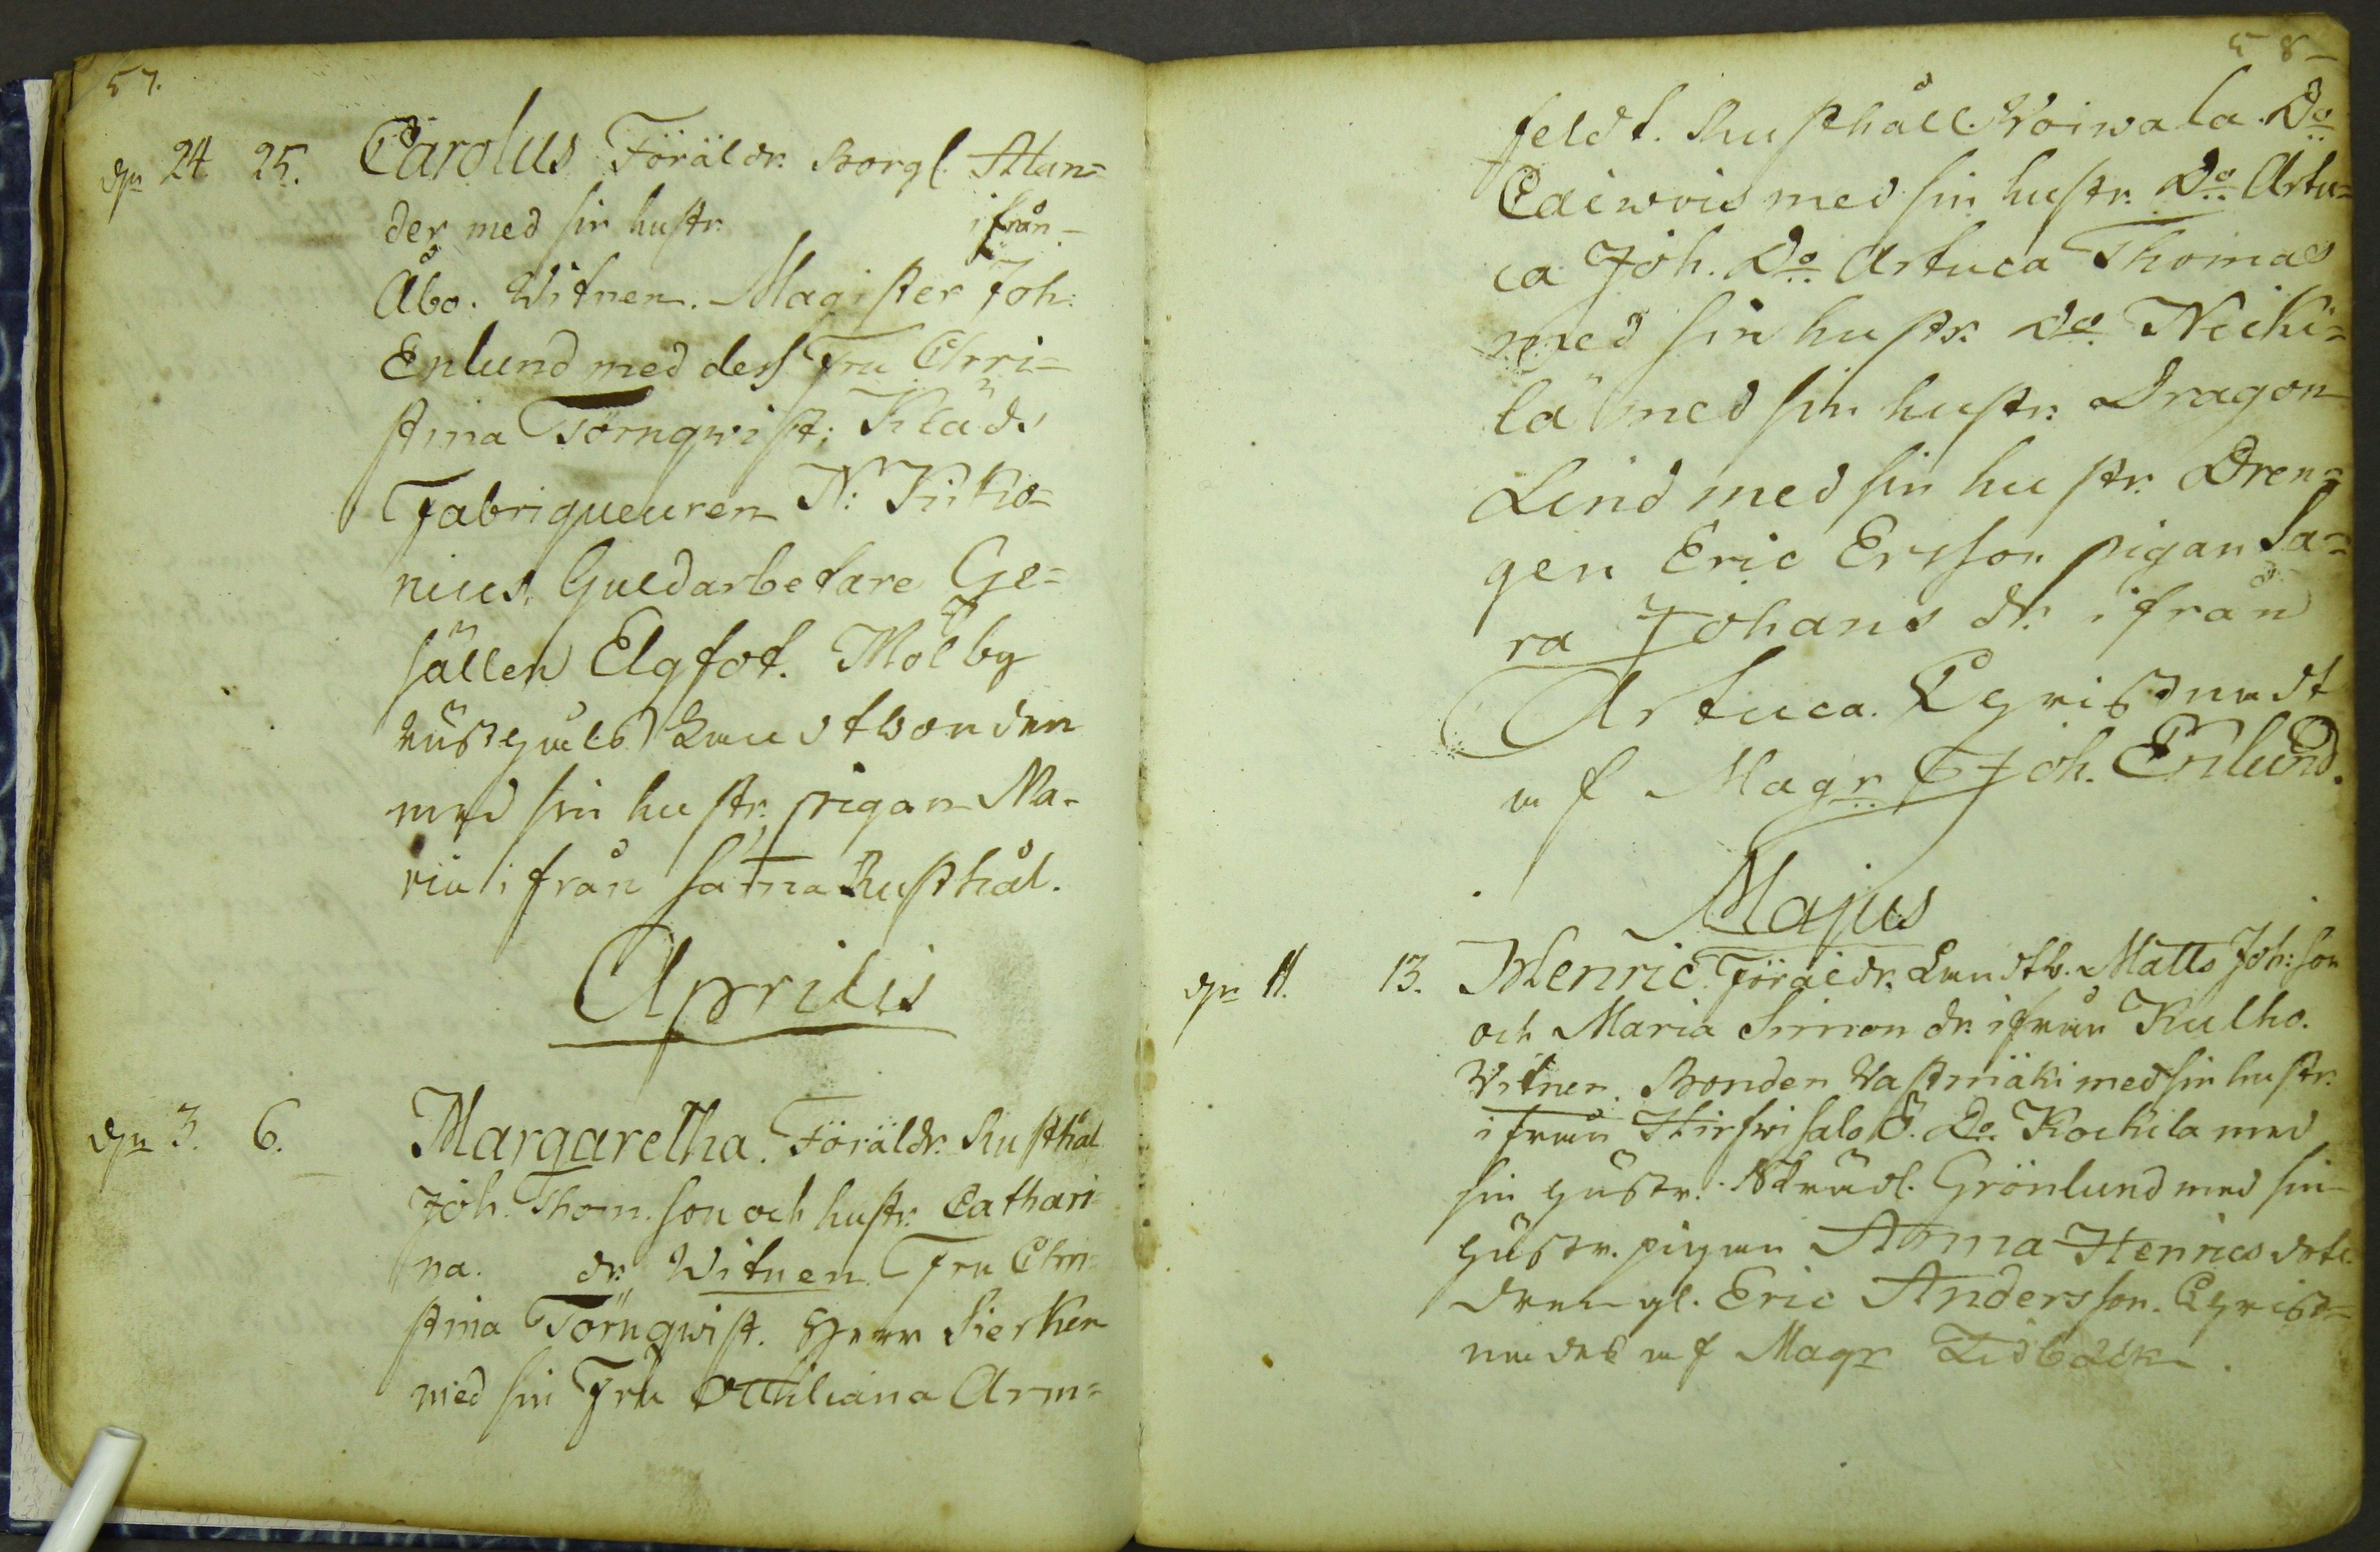 57.
dn 24 25. Carolus Föräldr. Borgl. Alan=
der med sin hustr. ifrån
Åbo. Witnen. Magister Joh:
Enlund med dess Fru Chri=
stina Törnqwist; Kläds
Fabriqueuren N: Kirko=
nius, Guldarbetare Ge=
sällen Elgfot. Mölby
rusthåld Landtbonden
med sin hustr: pigan Ma-
ria ifrån samma Rusthål.
Aprilis
dn 3. 6. Margaretha. Föräldr. Rusthål
Joh. Thom. son och hustr. Cathari=
na. dr. Witnen. Fru Chri=
stina Törnqwist. Herr Sierken
med sin Fru Ottiliana Arm=
58
feldt. Rusthåll. Woiwala. Do
Caiwois med sin hustr. Do Artu=
ca Joh. Do Artuca Thomas
med sin hustr. Do Nicki=
lä med sin hustr. Dragon
Lind med sin hustr. Dren=
gen Eric Ersson pigan Sa=
ra Johans dr. ifrån
Artuca. Christnadt
af Magr Joh. Enlund.
Majus
dn 11. 13. Henric. Föräldr. Landtb. Matts Joh:son
och Maria Simon dr. ifrån Kulho.
Witnen. Bonden Wastmäki med sin hustr.
ifrån Hirfwisalo B. Do. Kockila med
sin hustr. Skrädl. Grönlund med sin
hustr. pigan Anna Henrics dotr.
drengl. Eric Andersson. Christ=
nades af Magr Lidbäck.